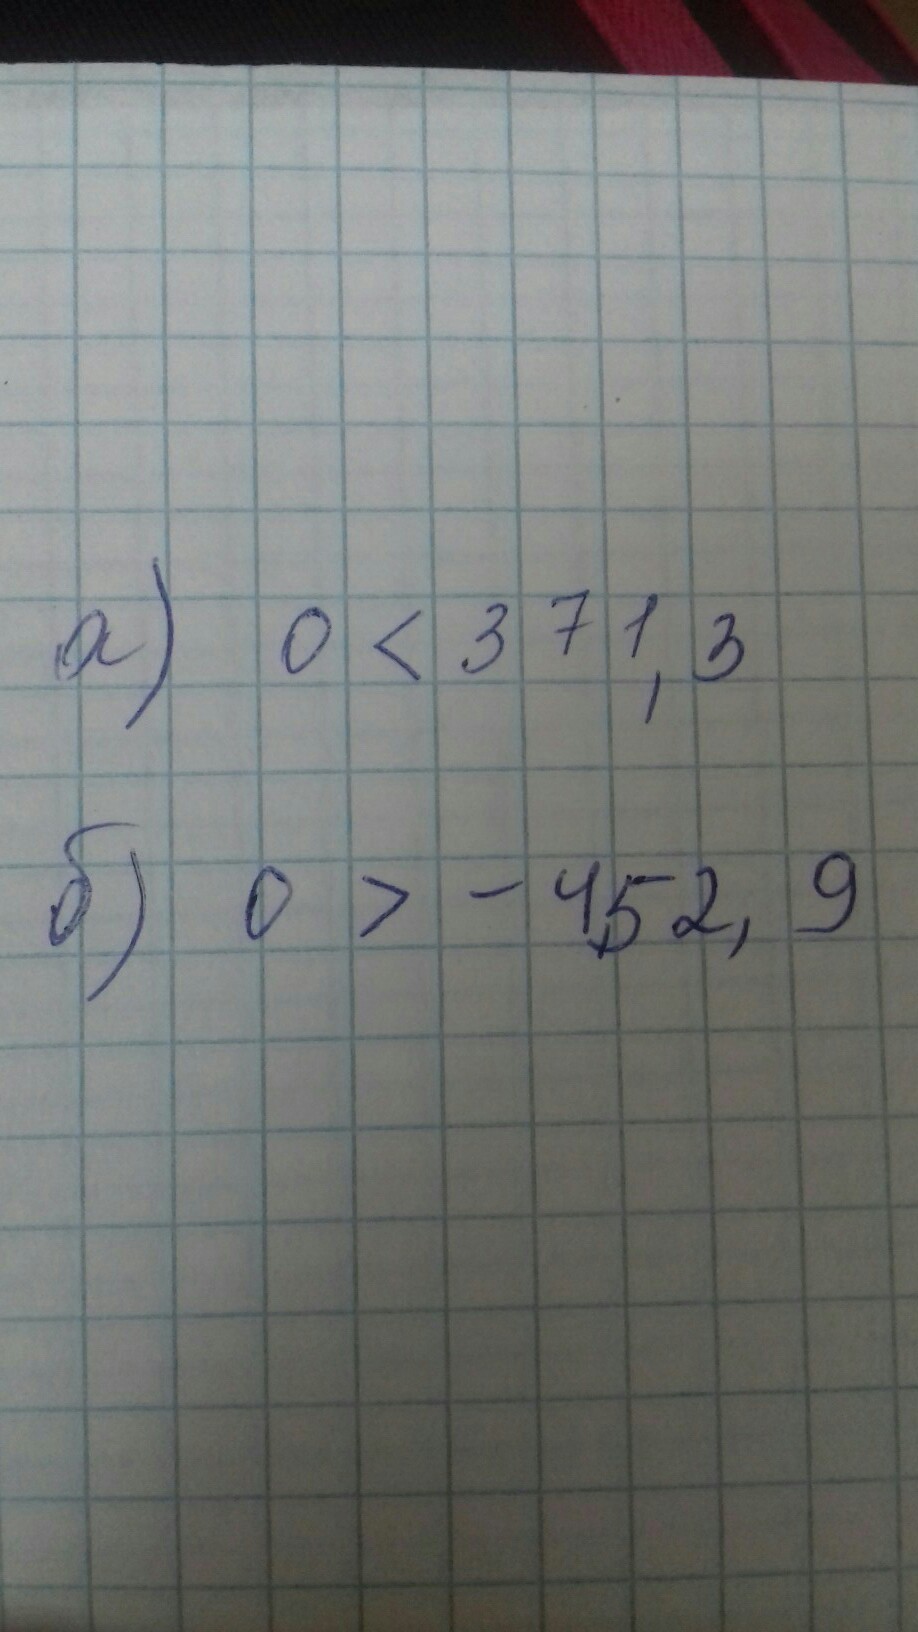 а) 0 < 371,3
б) 0 > - 452,9